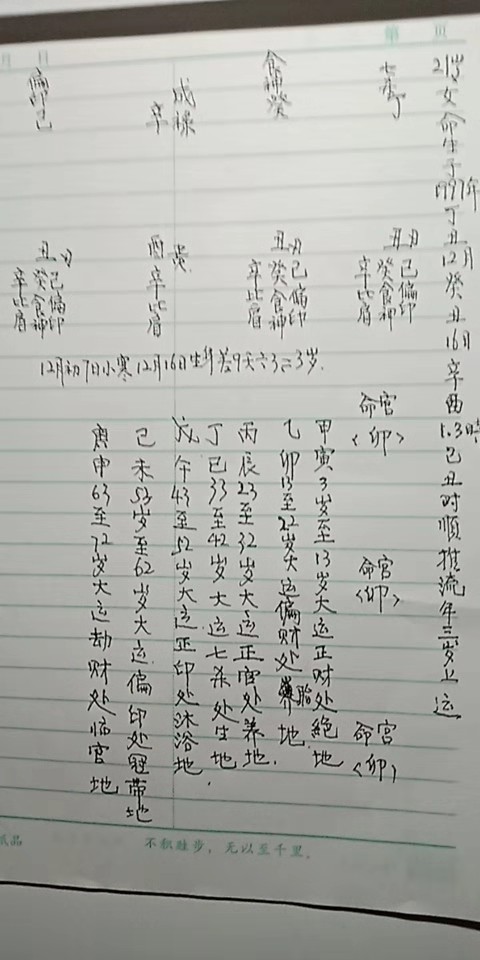 第 页
月 日
21岁女命生于1997年丁丑12月癸丑16日辛酉1.3時己丑时順推流年三岁上运
七杀丁
食神癸
辛
偏印己
丑
己偏印
癸食神
辛比肩
丑
己偏印
癸食神
辛比肩
酉
辛比肩
丑
己偏印
癸食神
辛比肩
12月初7日小寒12月16日生
命宫
<卯>
命宫
<卯>
命宫
<卯>
甲寅3岁至13岁大运正财处絕地
乙卯13至22岁大运偏财处胎地.
丙辰23至32岁大运正官处养地.
丁巳33至42岁大运七杀处生地.
戊午43至52岁大运正印处沐浴地
己未53岁至62岁大运偏印处冠带地
庚申63至72岁大运劫财处临官地
纸品
不积跬步，无以至千里。